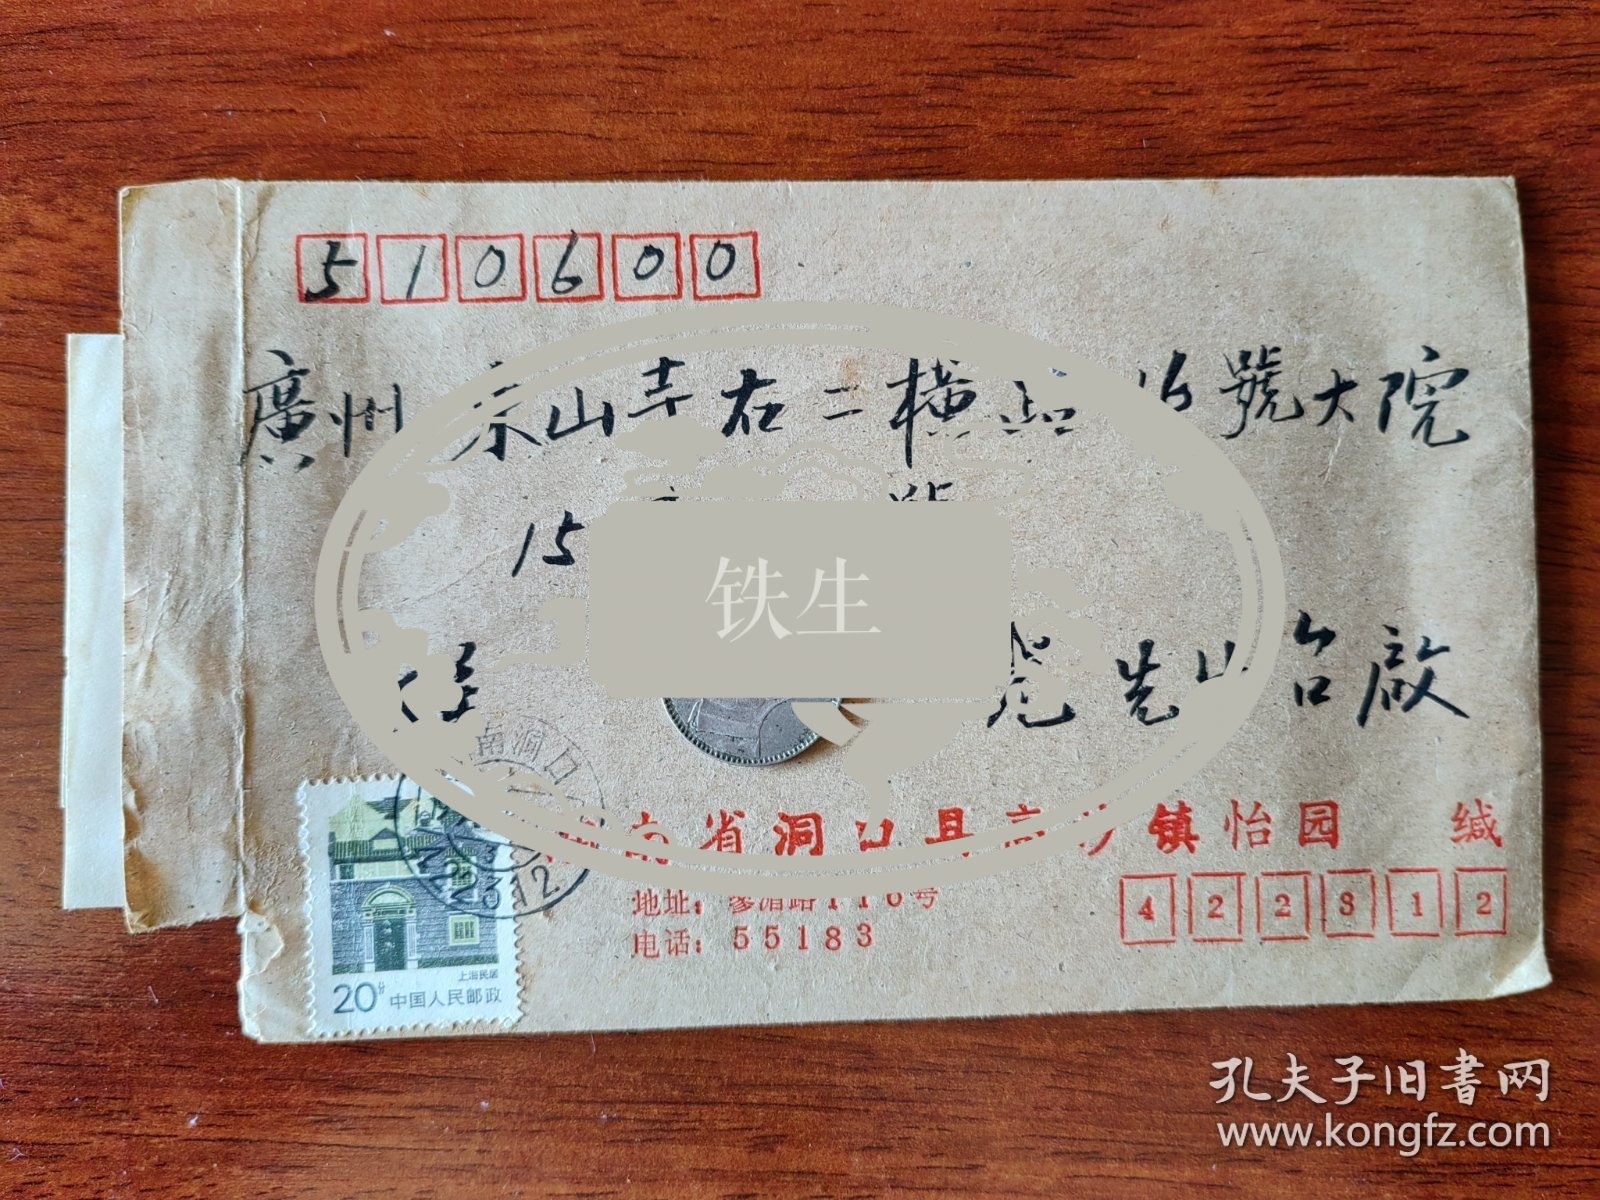 510600
廣州 东山寺右二横路 號大院
15
铁生
先生台啟
南洞口
湖南省洞口县高沙镇怡园 缄
地址：蓼湄路116号
电话：55183
422312
上海民居
20分 中国人民邮政
孔夫子旧书网
www.kongfz.com